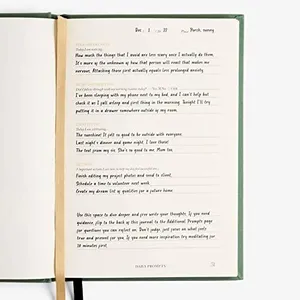 Dec 1 22 Perth, sunny
Today I am noticing...
How much the things that I avoid are less scary once I actually do them.
It's more of the unknown of how that person will react that makes me
nervous. Attacking these first actually equals less prolonged anxiety.
I've been sleeping with my phone next to my bed, and I can't help but
check it as I fall asleep and first thing in the morning. Tonight I'll try
putting it in a drawer somewhere outside of my room.
Today I am celebrating...
The sunshine! It felt so good to be outside with everyone.
Last night's dinner and game night. I love these!
The text from my sis. She's so good to me. Mom too.
Finish editing my project photos and send to client.
Schedule a time to volunteer next week.
Create my dream list of qualities for a future home.
Use this space to dive deeper and free write your thoughts. If you need
guidance, flip to the back of this journal to the Additional Prompts page
for questions you can reflect on. Don't judge, just focus on what feels
true and present for you. If you need more inspiration try meditating for
10 minutes first.
DAILY PROMPTS